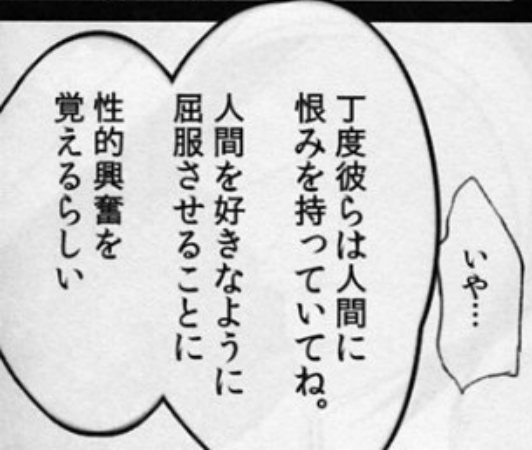 いや…
丁度彼らは人間に
恨みを持っていてね。
人間を好きなように
屈服させることに
性的興奮を
覚えるらしい